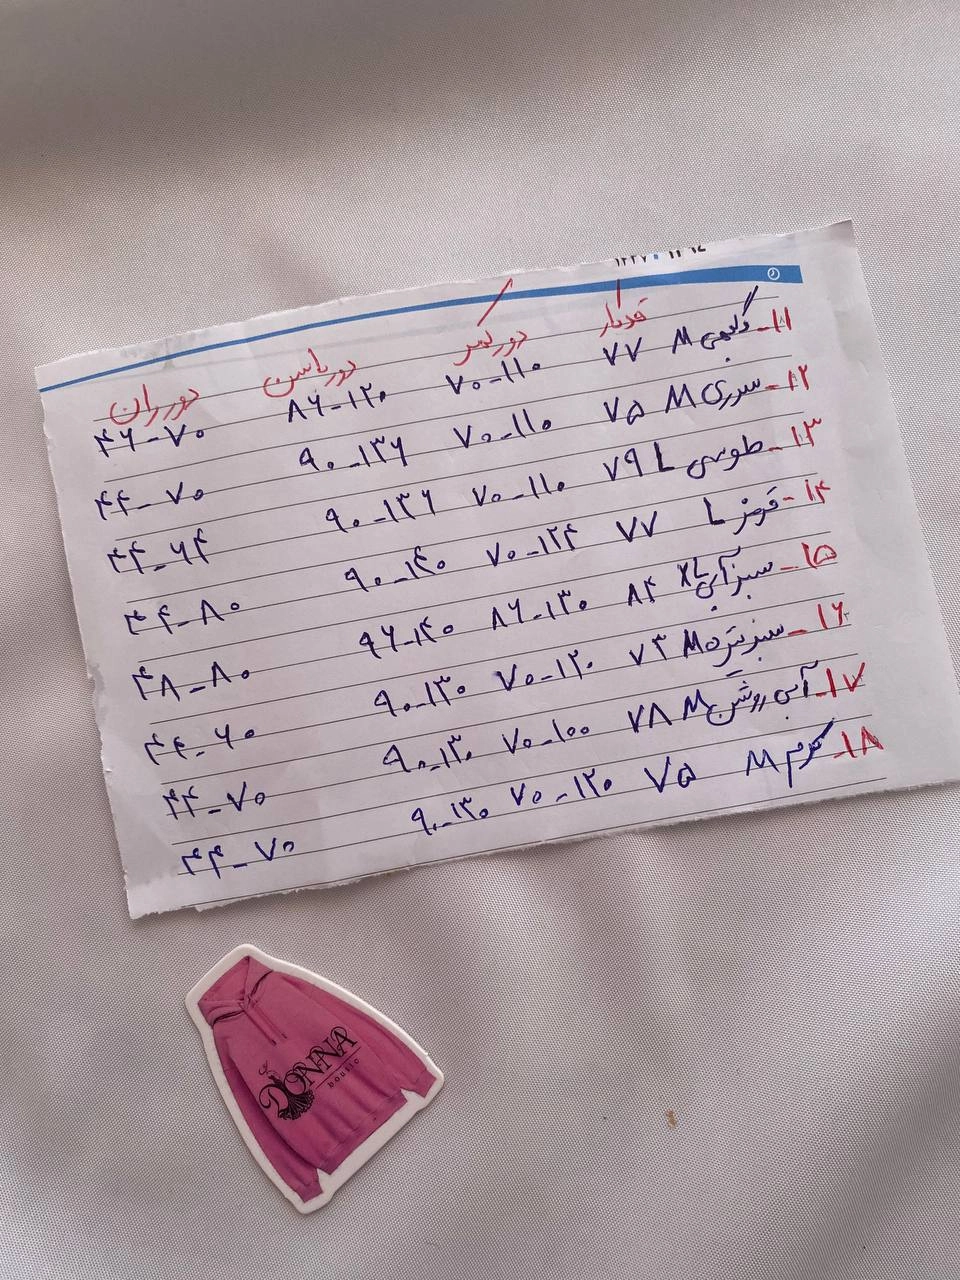 قد کار دور کمر دور باسن دور ران
۱۱- گلبهی M ۷۷ ۷۰-۱۱۰ ۸۶-۱۲۰ ۴۶-۷۰
۱۲- سدری M ۷۵ ۷۰-۱۱۰ ۹۰-۱۳۶ ۴۴-۷۰
۱۳- طوسی L ۷۹ ۷۰-۱۱۰ ۹۰-۱۳۶ ۴۴-۶۴
۱۴- قرمز L ۷۷ ۷۰-۱۲۴ ۹۰-۱۴۰ ۴۴-۸۰
۱۵- سبزآبی XL ۸۴ ۸۶-۱۳۰ ۹۶-۱۴۰ ۴۸-۸۰
۱۶- سبز تیره M ۷۳ ۷۰-۱۲۰ ۹۰-۱۳۰ ۴۴-۶۰
۱۷- آبی روشن M ۷۸ ۷۰-۱۰۰ ۹۰-۱۳۰ ۴۴-۷۰
۱۸- کرم M ۷۵ ۷۰-۱۲۰ ۹۰-۱۳۰ ۴۴-۷۰
DONNA
boutic